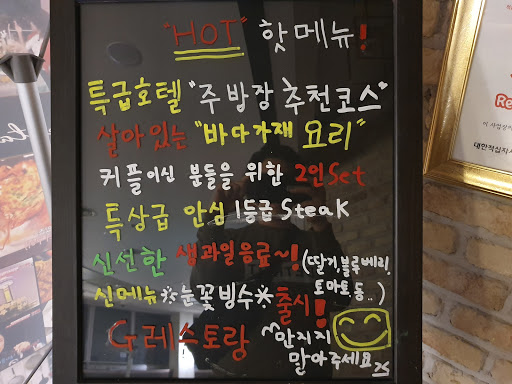 "HOT" 핫메뉴!
특급호텔 "주방장 추천코스"
살아있는 "바다가재 요리"
커플이신 분들을 위한 2인Set
특상급 안심 1등급 Steak
신선한 생과일음료~! (딸기,블루베리,
토마토 등..)
신메뉴※눈꽃빙수※출시!
G레스토랑
^^만지지
말아주세요
Re
이 사업장의
대한적십자사